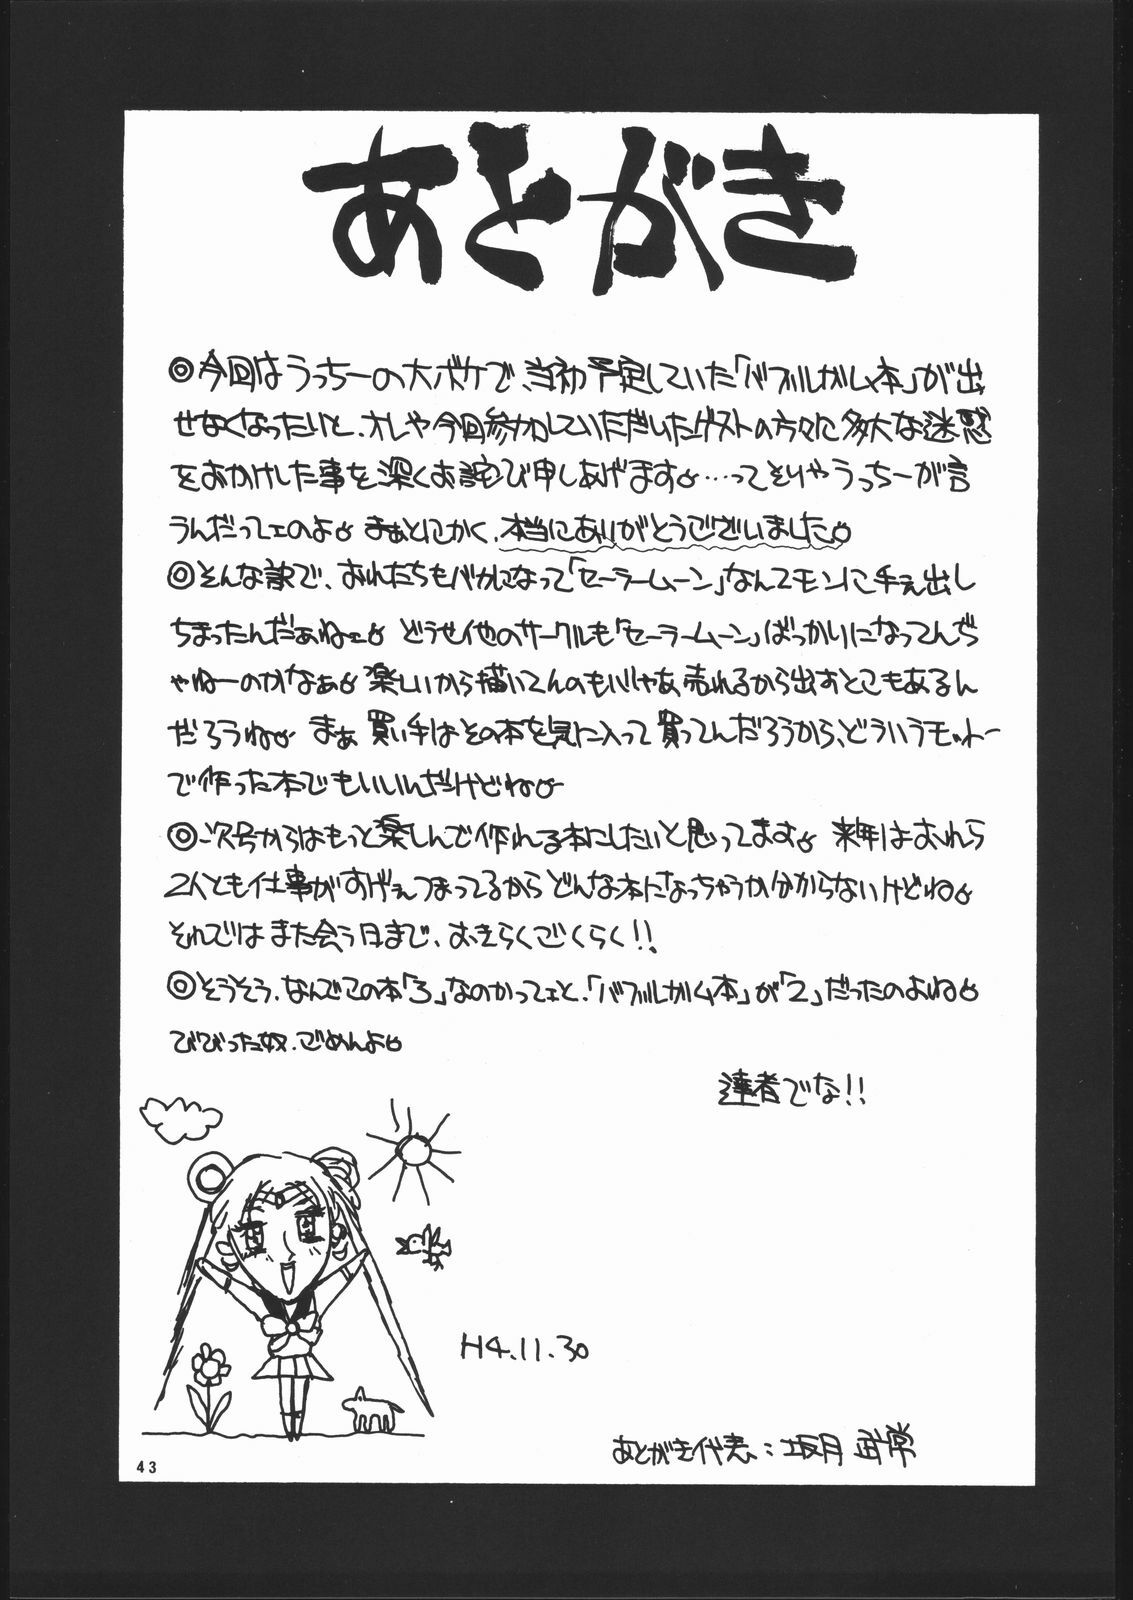 あとがき
◎今回はうっちーの大ボケで、当初予定していた「バブルガム本」が出
せなくなったいと、オレや今回参加していただいたゲストの方々に多大な迷惑
をおかけした事を深くお詫び申しあげます。…ってそりゃうっちーが言
うんだってェのよ。まぁとにかく、本当にありがとうございました。
◎そんな訳で、おれたちもバカになって「セーラームーン」なんてモンに手ぇ出し
ちまったんだぁねェ。どうせ他のサークルも「セーラームーン」ばっかりになってんぢ
ゃねーのかなぁ。楽しいから描いてんのもいじゃあ売れるから出すとこもあるん
だろうね。まぁ買い手はその本を気に入って買ってんだろうから、どういうモットー
で作った本でもいいんだけどね。
◎次号からはもっと楽しんで作れる本にしたいと思ってます。来年はおれら
2人とも仕事がすげぇつまってるからどんな本になっちゃうか分からないけどね。
それではまた会う日まで、おきらくごくらく!!
◎そうそう、なんでこの本「3」なのかってェと、「バブルガム本」が「2」だったのよね。
びびった奴、ごめんよ。
達者でな!!
H4.11.30
あとがき代表：坂月 武常
43